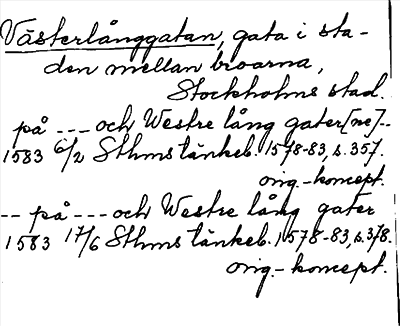 Västerlånggatan, gata i sta-
den mellan broarna,
Stockholms stad.
på --- och Westre lång gater[ne]--
1583 6/2 Sthms tänkeb. 1578-83, s. 357.
orig.-koncept.
-- på --- och Westre lång gater
1583 17/6 Sthms tänkeb. 1578-83, s. 378.
orig.-koncept.